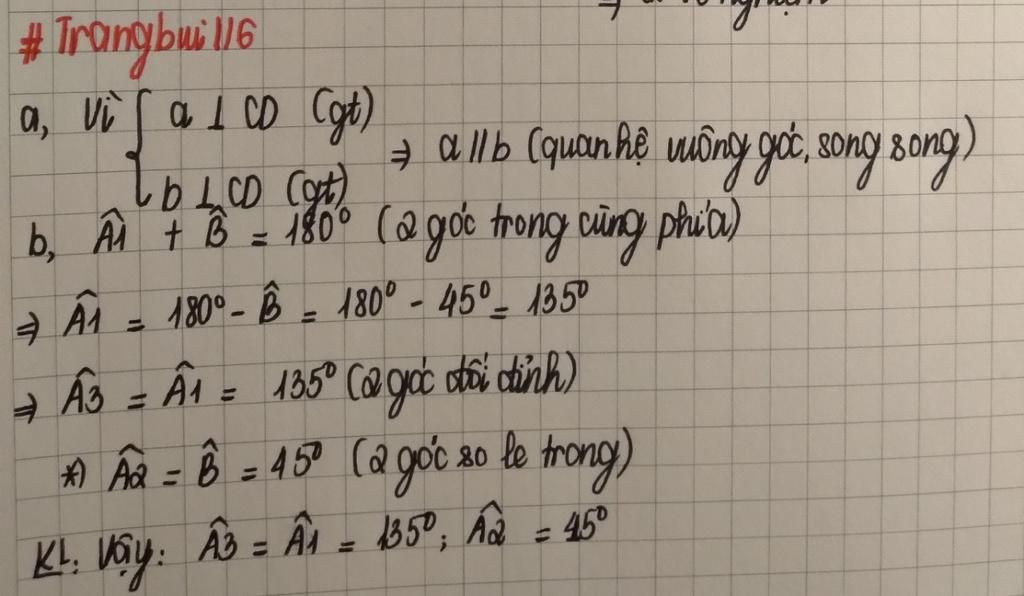 # Trangbui116
a, Vì { a ⊥ CD (gt)
b ⊥ CD (gt) ⇒ a // b (quan hệ vuông góc, song song)
b, Â1 + B̂ = 180° (2 góc trong cùng phía)
⇒ Â1 = 180° - B̂ = 180° - 45° = 135°
⇒ Â3 = Â1 = 135° (2 góc đối đỉnh)
*) Â2 = B̂ = 45° (2 góc so le trong)
KL: Vậy: Â3 = Â1 = 135°; Â2 = 45°